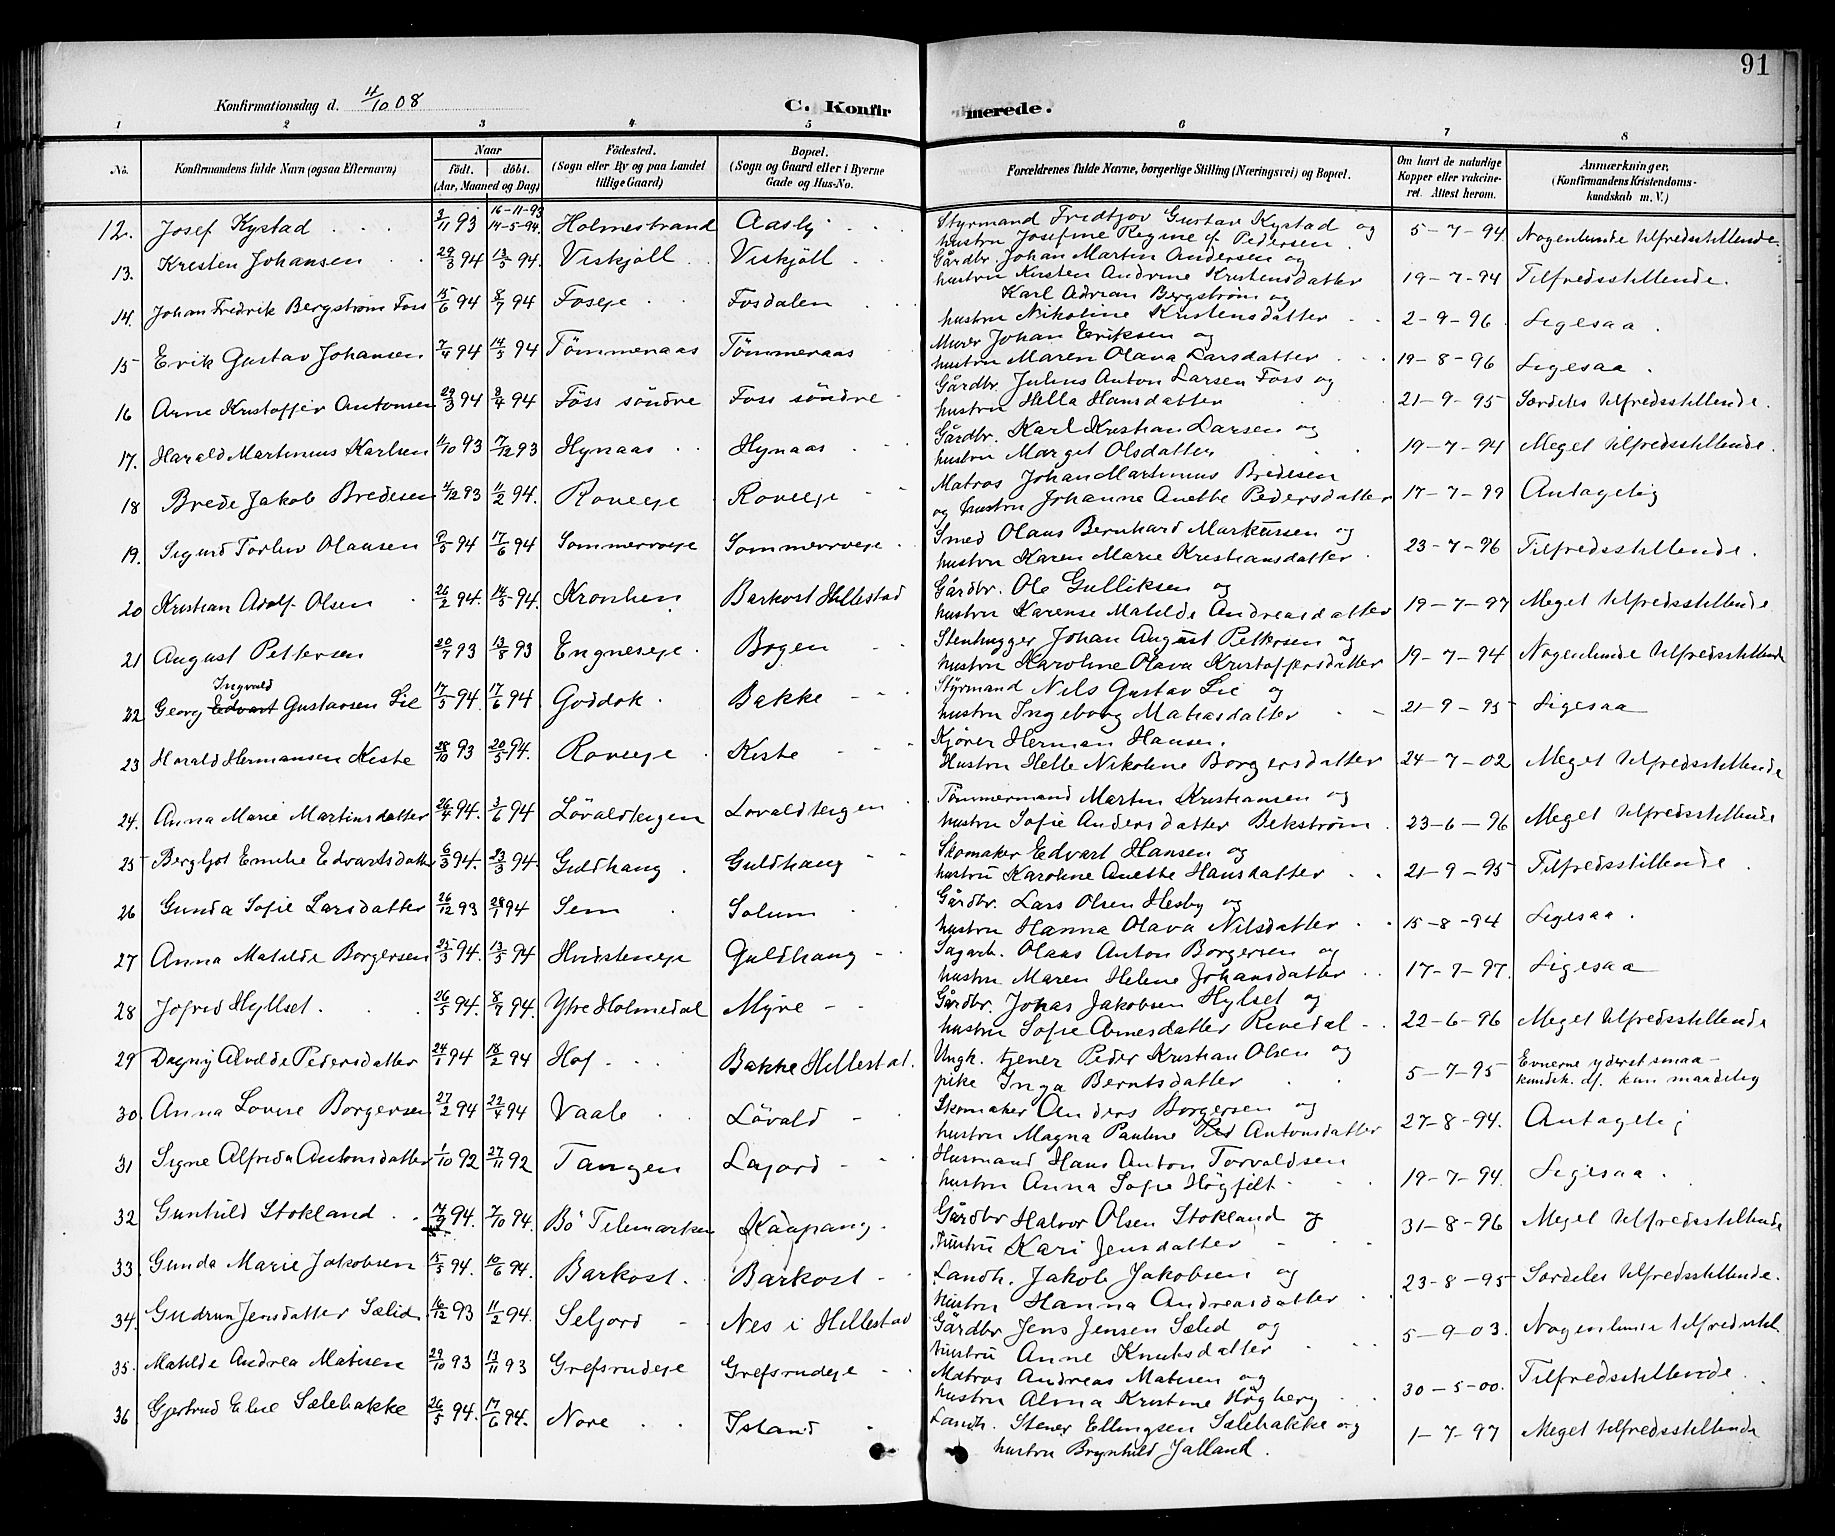 91
Konfirmationsdag d. 4/10 08
C. Konfirmerede.
1 2 3 4 5 6 7 8
No. Konfirmandens fulde Navn (ogsaa Efternavn) Naar födt. döbt. (Aar, Maaned og Dag) Födested. (Sogn eller By og paa Landet tillige Gaard) Bopæl. (Sogn og Gaard eller i Byerne Gade og Hus-No. Forældrenes fulde Navne, borgerlige Stilling (Næringsvei) og Bopæl. Om havt de naturlige Kopper eller vaccineret. Attest herom. Anmærkninger, (Konfirmandens Kristendomskundskab m. V.)
12. Josef Kystad 3/11 93 16-11-93 14-5-94. Holmestrand Aasly Styrmand Fredtjov Gustav Kystad og
hustru Josefine Regine f. Pedersen. 5-7-94 Nogenlunde tilfredsstillende.
13. Kresten Johansen 29/3 94 13/5 94. Viskjöll Viskjöll Gårdbr. Johan Martin Andersen og
hustru Kirsten Andrine Kristensdatter 19-7-94 Tilfredsstillende.
14. Johan Fredrik Bergström Foss 15/6 94 8/7 94 Foseje Fosdalen Karl Adrian Bergström og
hustru Nikoline Kristensdatter 2-9-96 Ligesaa.
15 Erik Gustav Johansen 7/4 94 14/5 94 Tømmeraas Tømmeraas Murer Johan Eriksen og
hustru Maren Olava Larsdatter 19-8-96 Ligesaa.
16 Arne Kristoffer Antonsen 29/3 94 3/4 94 Föss söndre Foss söndre Gårdbr. Julius Anton Larsen Foss og
hustru Hella Hansdatter 21-9-95 Særdeles tilfredsstillende.
17. Harald Martinius Karlsen 11/10 93 7/12 93 Hynaas Hynaas Gårdbr. Karl Kristian Larsen og
hustru Marget Olsdatter 19-7-94 Meget tilfredsstillende.
18 Brede Jakob Bredesen 11/12 93 11/2 94. Roveeje Roveeje Matros Johan Martinius Bredesen
og hustru Johanne Anette Pedersdatter 17-7-99 Antagelig
19. Sigurd Torlev Olausen 9/5 94 17/6 94 Sommerroeje Sommerroeje Smed Olaus Bernhard Markussen og
hustru Karen Marie Kristiansdatter 23-7-96 Tilfredsstillende.
20 Kristian Adolf Olsen 26/2 94. 14/5 94. Kronlien Barkost Hillestad Gårdbr. Ole Gulliksen og
hustru Karense Matilde Andreasdatter 19-7-97 Meget tilfredsstillende
21 August Pettersen 20/7 93 13/8 93 Engneseje Bogen Stenhugger Johan August Pettersen og
hustru Karoline Olava Kristoffersdatter 19-7-94 Nogenlunde tilfredsstillende
22 Georg Edvart Ingvald Gustavsen Lie 17/5 94. 17/6 94 Goddok Bakke Styrmand Nils Gustav Lie og
hustru Ingeborg Matiasdatter 21-9-95 Ligesaa
23 Harald Hermansen Kiste 28/10 93 20/5 94. Roveeje Kiste Kjörer Herman Hansen.
Hustru Helle Nikoline Borgersdatter 24-7-02 Meget tilfredsstillende
24. Anna Marie Martinsdatter 26/4 94. 3/6 94 Lövaldteigen Lovaldteigen Tømmermand Martin Kristiansen og
hustru Sofie Andersdatter Bekström 23-6-96 Meget tilfredsstillende
25 Bergljot Emilie Edvartsdatter 6/3 94. 23/3 94. Guldhaug Guldhaug Skomaker Edvart Hansen og
hustru Karoline Anette Hansdatter 21-9-95 Tilfredsstillende
26 Gunda Sofie Larsdatter 26/12 93 28/1 94 Sem Solum Gårdbr. Lars Olsen Hesby og
hustru Hanna Olava Nilsdatter 15-8-94 Ligesaa.
27 Anna Matilde Borgersen 25/3 94. 13/5 94 Hvidsteneje Guldhaug Sagarb. Olaus Anton Borgersen og
hustru Maren Helene Johansdatter 17-7-97. Ligesaa
28 Jofred Hyllset. 26/5 94. 8/7 94. Ytre Holmedal Myre Gårdbr. Johas Jakobsen Hylset og
hustru Sofie Arnesdatter Rivedal 22-6-96 Meget tilfredsstillende
29 Dagny Alvilde Pedersdatter 24/1 94 18/2 94 Hof Bakke Hillestad. Ungk. tjener Peder Kristian Olsen og
pike Inga Berntsdatter 5-7-95 Evnerne yderst smaa - kundsk. df. kun maadelig
30. Anna Lovise Borgersen 27/2 94 22/4 94 Vaale Lövald Skomaker Anders Borgersen og
hustru Magna Pauline Antonsdatter 27-8-94. Antagelig
31 Signe Alfreda Antonsdatter 1/10 92 27/11 92 Tangen Lajord Husmand Hans Anton Torvaldsen
hustru Anna Sofie Högfelt 19-7-94. Ligesaa.
32 Gunhild Stokland 14/9 94. 7/10 94. Bö Telemarken Kaapang Gårdbr Halvor Olsen Stokland og
hustru Kari Jensdatter 31-8-96 Meget tilfredsstillende
33. Gunda Marie Jakobsen 15/5 94. 10/6 94. Barkost. Barkost Landh. Jakob Jakobsen og
hustru Hanna Andreasdatter 23-8-95 Særdeles tilfredsstillende.
34. Gudrun Jensdatter Sælid 16/12 93 11/2 94. Seljord Nes i Hillestad Gårdbr Jens Jensen Sælid og
hustru Anne Knutsdatter 5-9-03. Nogenlunde tilfredsstil.
35. Matilde Andrea Matisen 29/10 93 13/11 93 Grefsrudeje Grefsrudeje Matros Andreas Matisen og
hustru Alma Kristine Högberg 30-5-00. Tilfredsstillende.
36 Gjertrud Elne Sælebakke 26/5 94. 17/6 94. Nore Island Landh. Stener Ellingsen Sælebakke og
hustru Brynhild Jalland. 1-7-97 Meget tilfredsstillende